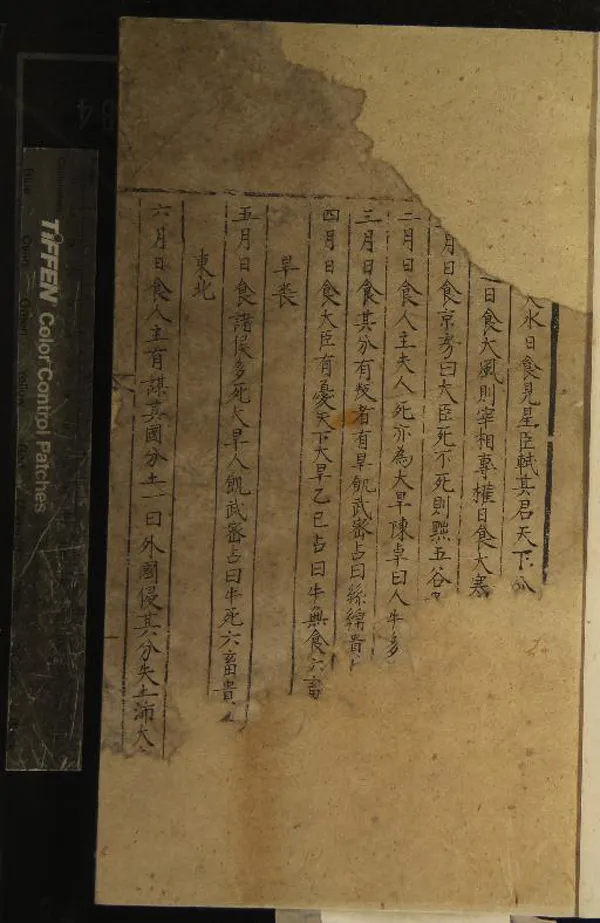 水日食見星臣弒其君天下分
日食大風則宰相專權日食大寒
月日食京房曰大臣死不死則黜五谷
二月日食人主夫人死亦為大旱陳卓曰人牛多
三月日食其分有疫者有旱飢武密占曰絲綿貴
四月日食大臣有憂天下大旱乙巳占曰牛無食六畜
旱喪
五月日食諸侯多死大旱人飢武密占曰牛死六畜貴
東北
六月日食人主有謀其國分土一曰外國侵其分失土沛大
TIFFEN Color Control Patches